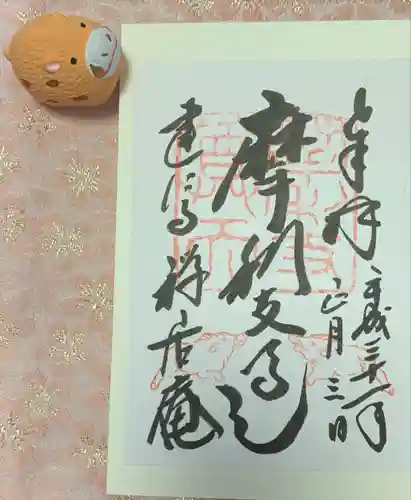 奉拝
平成三十一年
正月三日
摩利支尊天
建仁寺
禅居庵